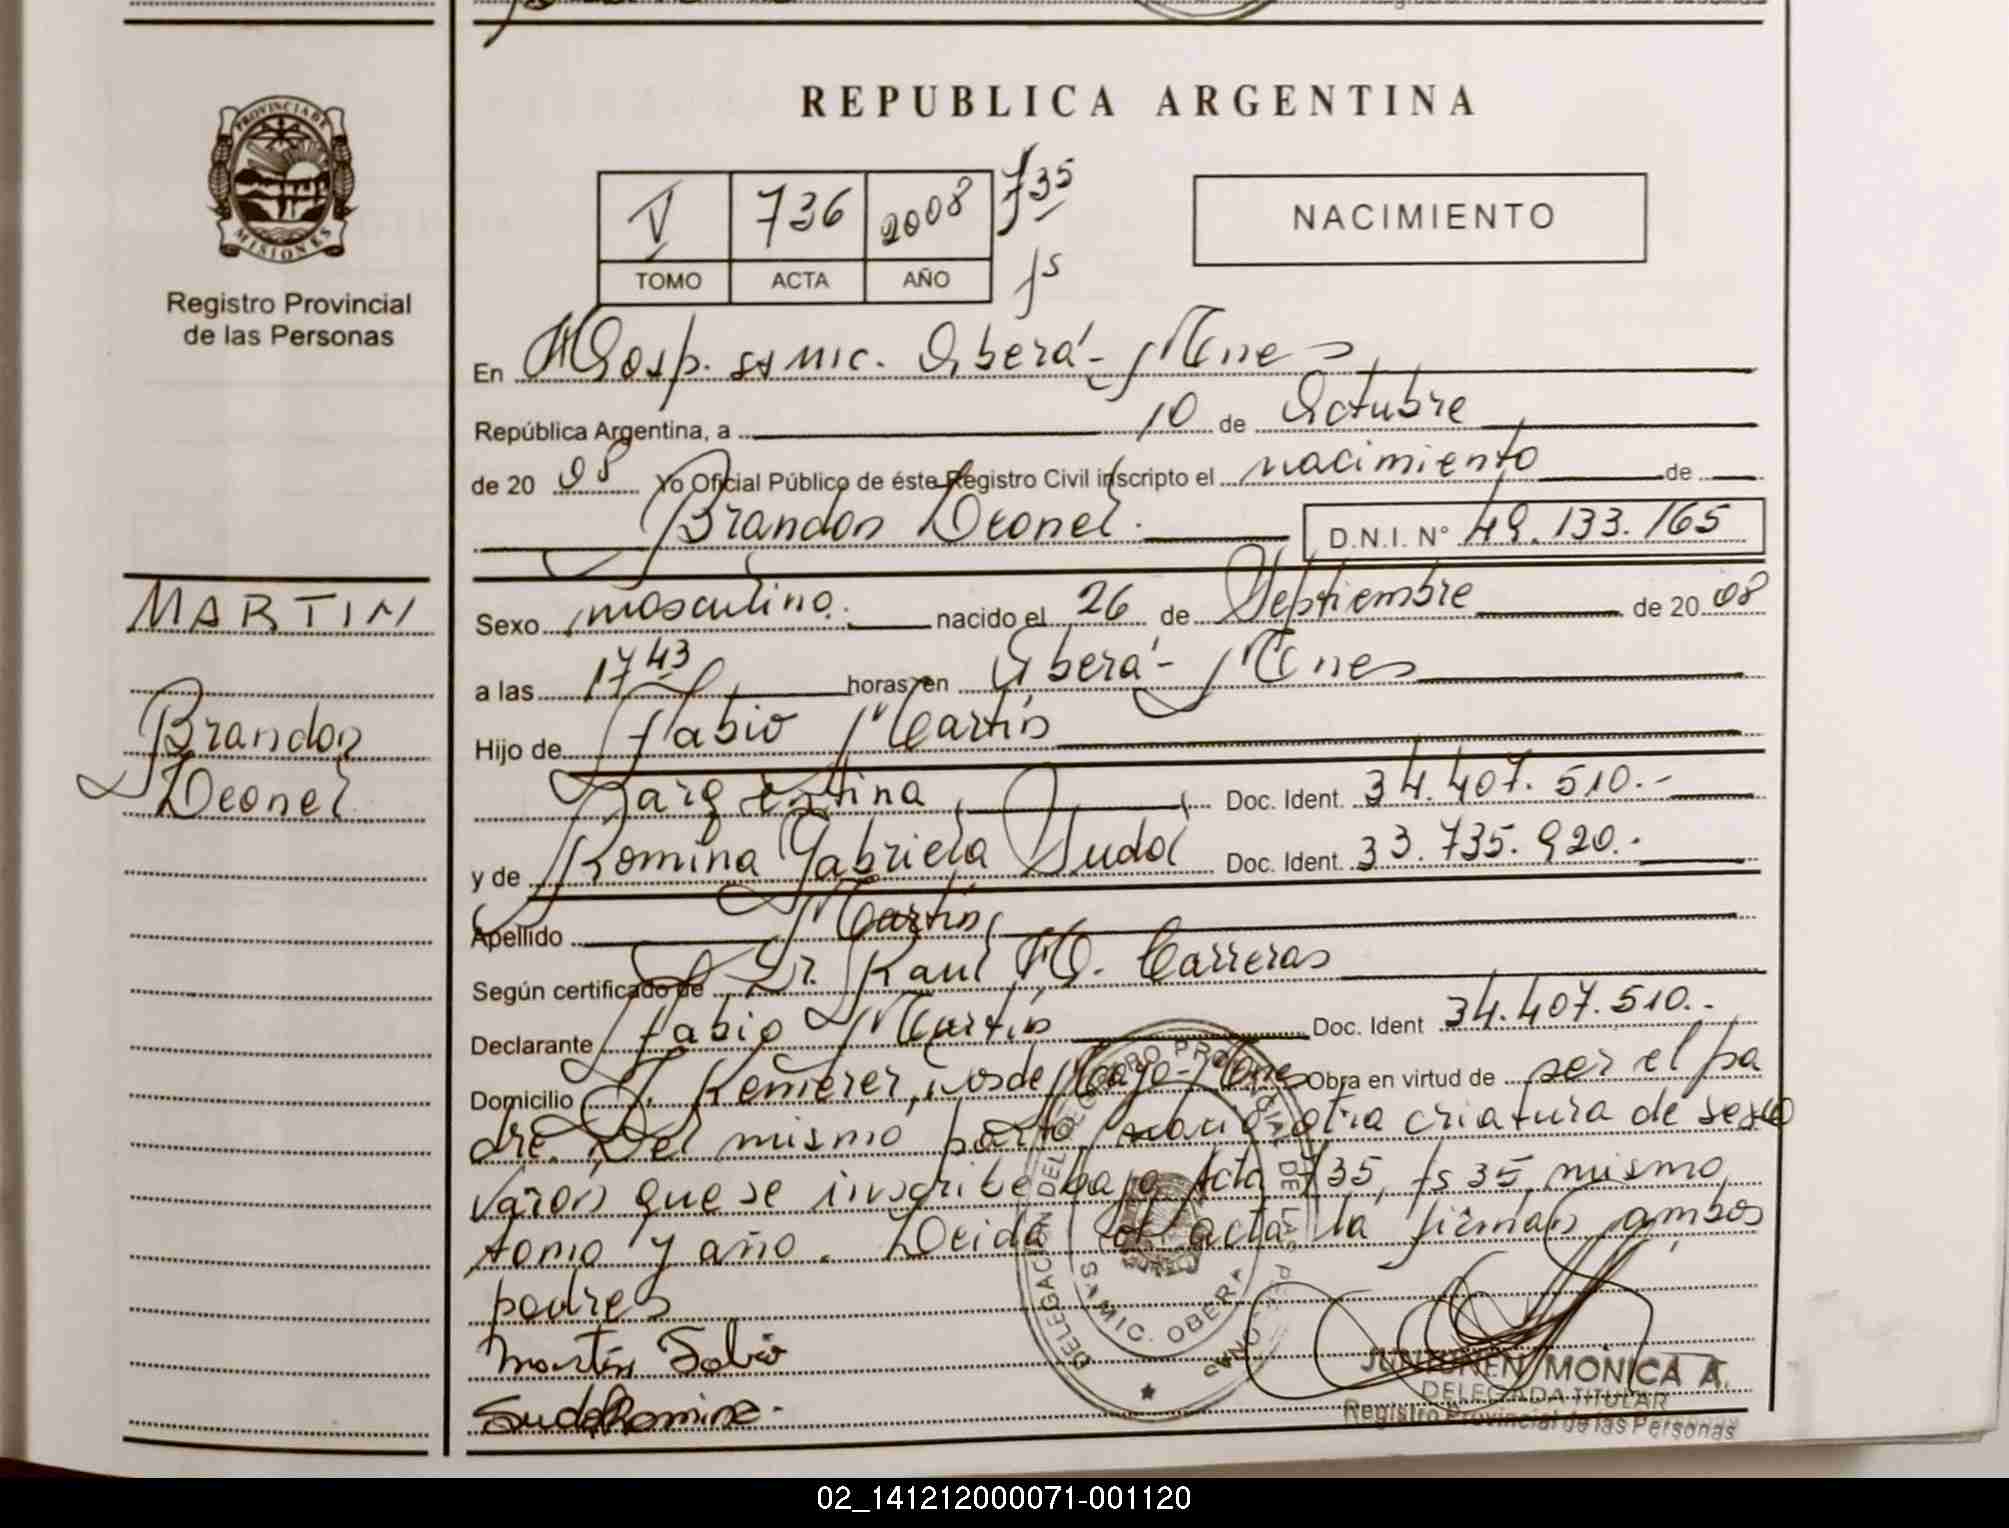 REPUBLICA ARGENTINA
PROVINCIA DE
MISIONES
Registro Provincial
de las Personas
V 736 2008 735
TOMO ACTA AÑO fs
NACIMIENTO
En Hosp. SAMIC. Oberá - Mnes
República Argentina, a 10 de Octubre
de 2008 Yo Oficial Público de éste Registro Civil inscripto el nacimiento de
Brandon Leonel. D.N.I. N° 49.133.165
MARTIN
Brandon
Leonel
Sexo masculino. nacido el 26 de Septiembre de 2008
a las 17 43 horas en Oberá - Mnes
Hijo de Fabio Martín
argentina Doc. Ident. 34.407.510.-
y de Romina Gabriela Sudol Doc. Ident. 33.735.920.-
Apellido Martín
Según certificado de Dr. Raul H. Carreras
Declarante Fabio Martín Doc. Ident 34.407.510.-
Domicilio Kemerer, de Mayo - Mnes Obra en virtud de ser el pa
dre. Del mismo parto nació otra criatura de sexo
varón que se inscribe bajo Acta 735, fs 35, mismo
tomo y año. Leída el acta la firman ambos
padres
Martín Fabio
Sudol Romina.
DELEGACION DEL REGISTRO PROVINCIAL DE LAS PERSONAS
SAMIC. OBERA
MONICA A.
DELEGADA TITULAR
Registro Provincial de las Personas
02_141212000071-001120